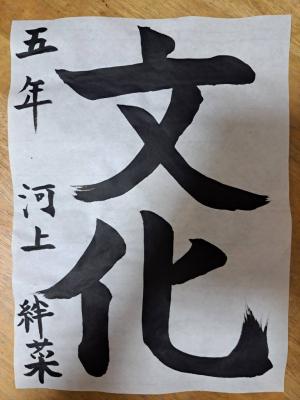 文化
五年 河上 絆菜